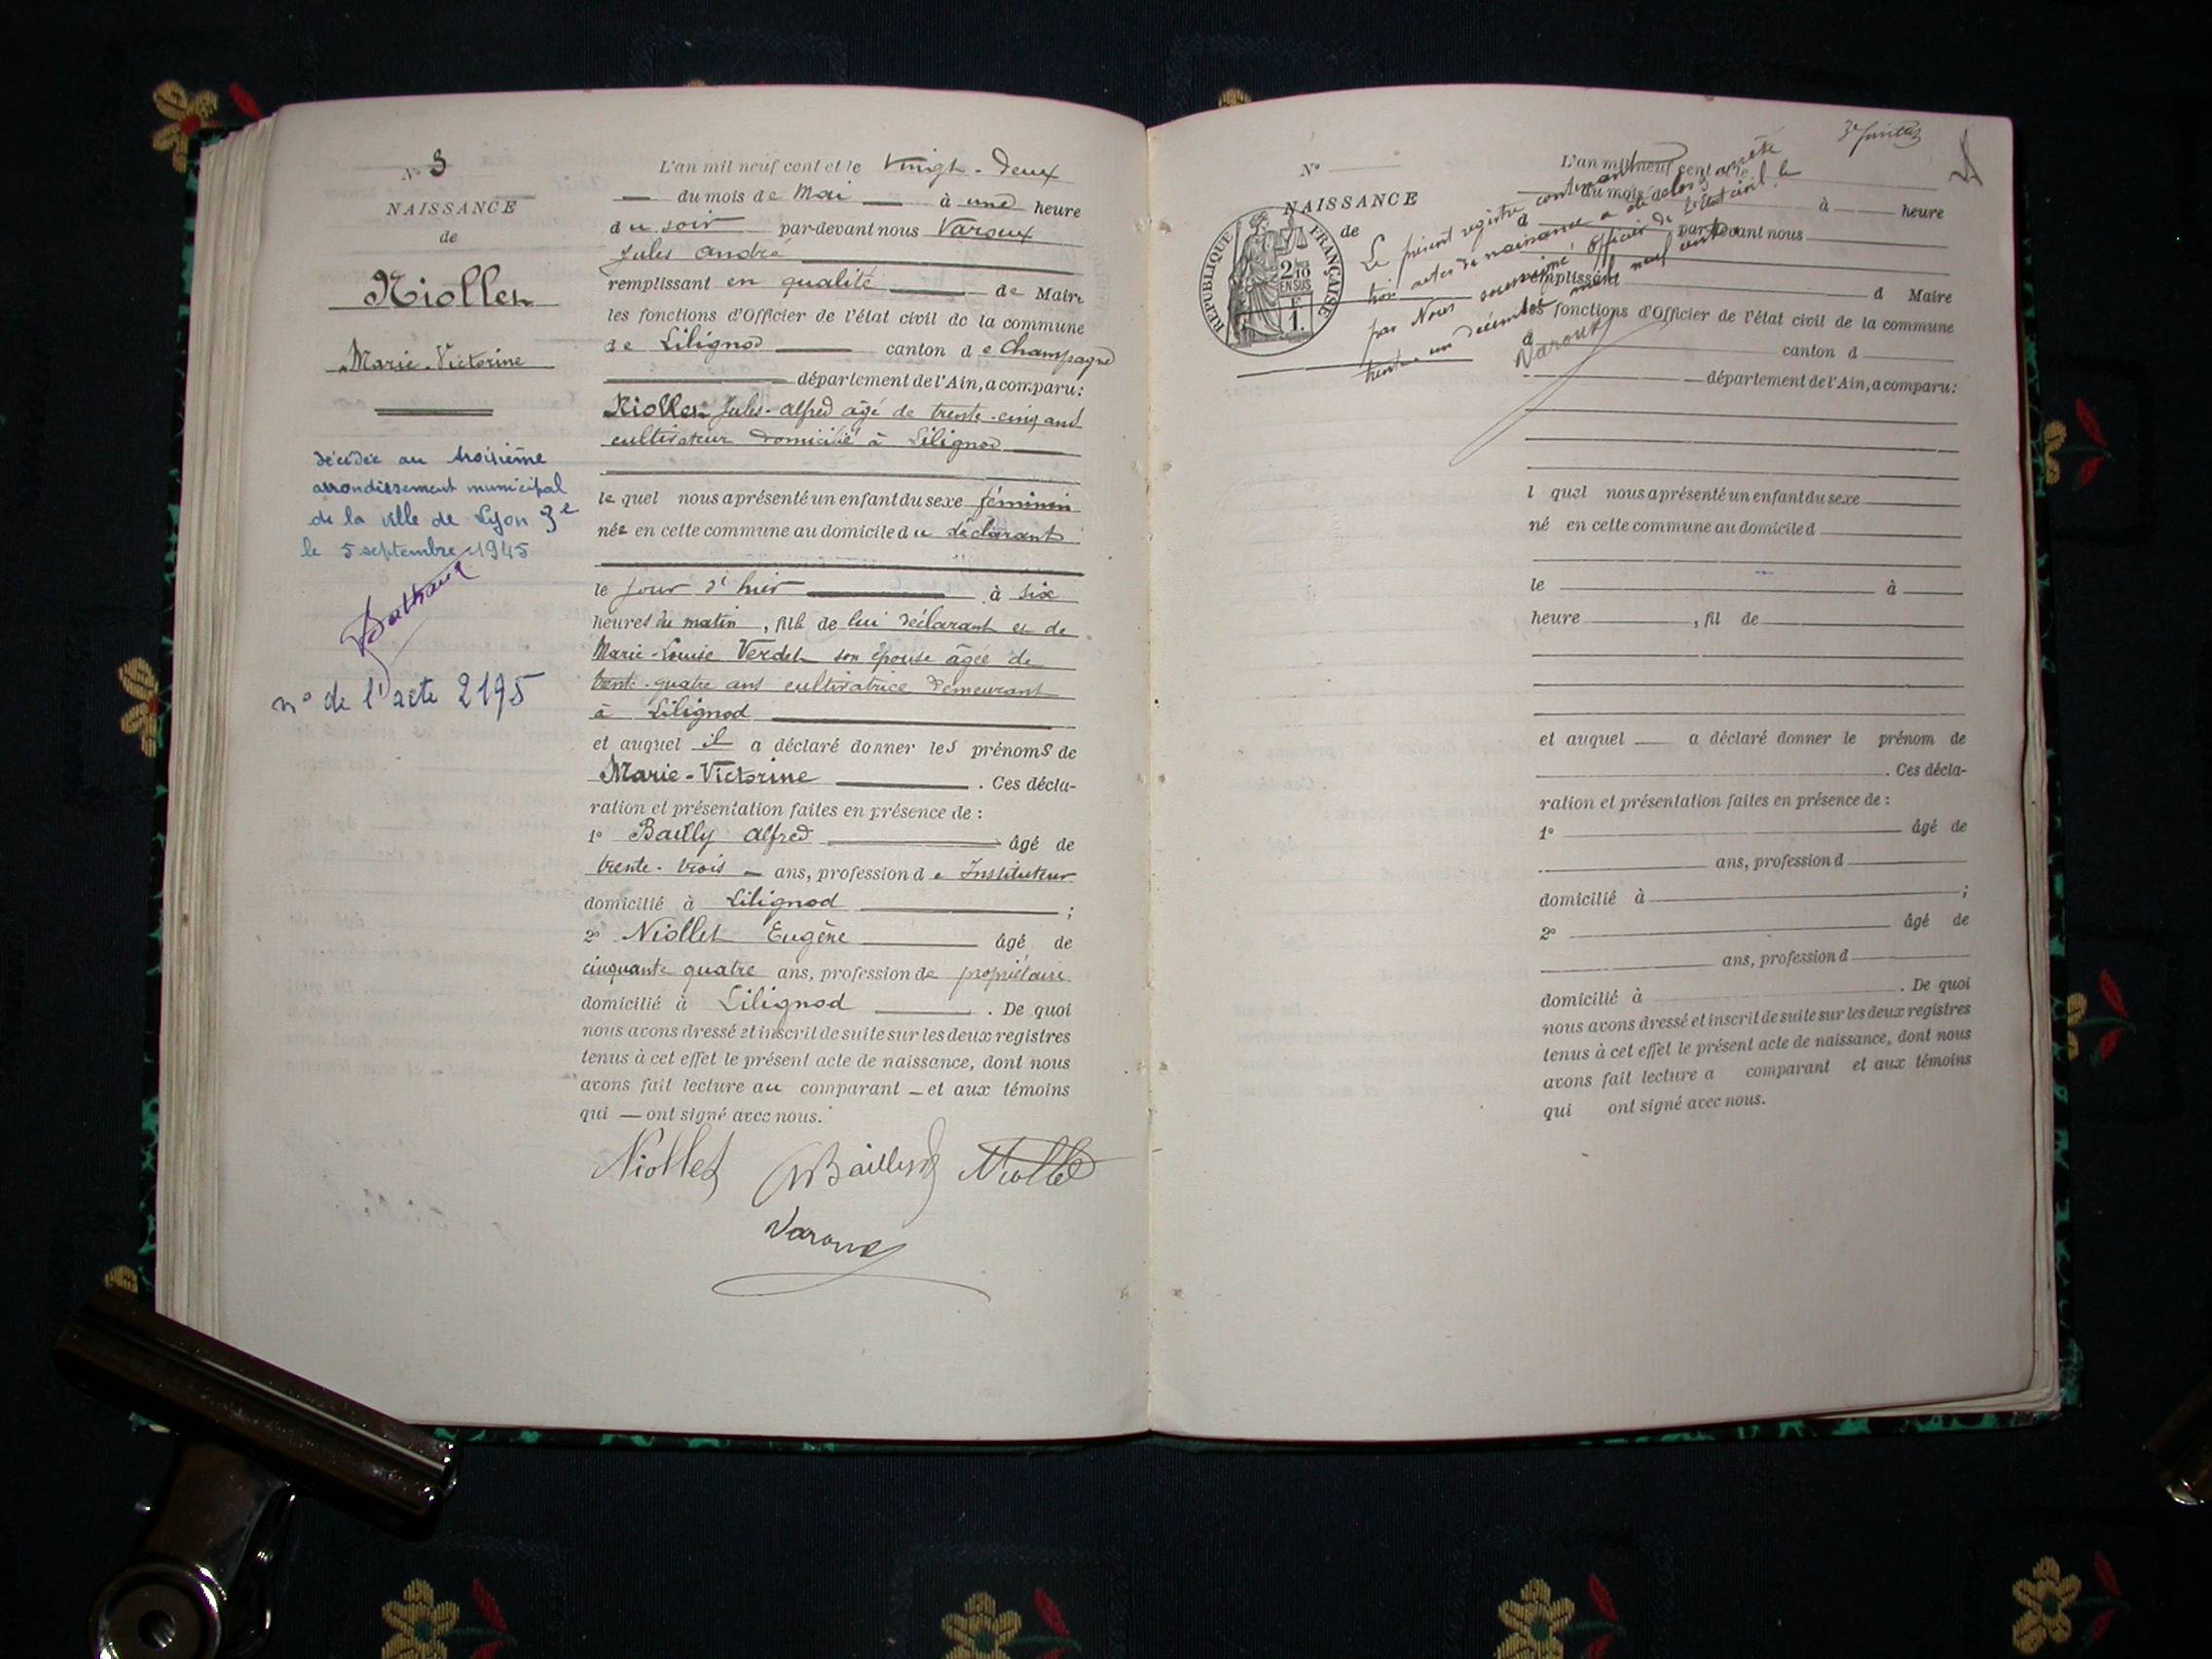 N° 3
NAISSANCE
de
Niollet
Marie-Victorine
décédée au troisième
arrondissement municipal
de la ville de Lyon 3e
le 5 septembre 1945
n° de l'acte 2195
L'an mil neuf cent et le Vingt-deux
du mois de Mai à une heure
du soir par-devant nous Varoux
Jules André
remplissant en qualité de Maire
les fonctions d'Officier de l'état civil de la commune
de Lilignod canton de Champagne
département de l'Ain, a comparu:
Niollet Jules-Alfred âgé de trente-cinq ans
cultivateur domicilié à Lilignod
lequel nous a présenté un enfant du sexe féminin
née en cette commune au domicile du déclarant
le jour d'hier à six
heures du matin, fille de lui déclarant et de
Marie-Louise Verdet son épouse âgée de
quatre ans cultivatrice demeurant
à Lilignod
et auquel il a déclaré donner les prénoms de
Marie-Victorine . Ces décla-
ration et présentation faites en présence de :
1° Bailly Alfred âgé de
trente-trois ans, profession de Instituteur
domicilié à Lilignod ;
2° Niollet Eugène âgé de
cinquante quatre ans, profession de propriétaire
domicilié à Lilignod . De quoi
nous avons dressé et inscrit de suite sur les deux registres
tenus à cet effet le présent acte de naissance, dont nous
avons fait lecture au comparant et aux témoins
qui ont signé avec nous.
Niollet ABailly Niollet
Varoux
N°
NAISSANCE
de
RÉPUBLIQUE FRANÇAISE
2/10
EN SUS
1F.
Le présent registre contenant
trois actes de naissance a été clos et arrêté
par Nous soussigné, Officier de l'état civil le
trente un décembre mil neuf cent
Varoux
L'an mil neuf cent et le
du mois d à heure
d par-devant nous
remplissant d Maire
les fonctions d'Officier de l'état civil de la commune
d canton d
département de l'Ain, a comparu:
l quel nous a présenté un enfant du sexe
né en cette commune au domicile d
le à
heure , fil de
et auquel a déclaré donner le prénom de
. Ces décla-
ration et présentation faites en présence de :
1° âgé de
ans, profession d
domicilié à ;
2° âgé de
ans, profession d
domicilié à . De quoi
nous avons dressé et inscrit de suite sur les deux registres
tenus à cet effet le présent acte de naissance, dont nous
avons fait lecture a comparant et aux témoins
qui ont signé avec nous.